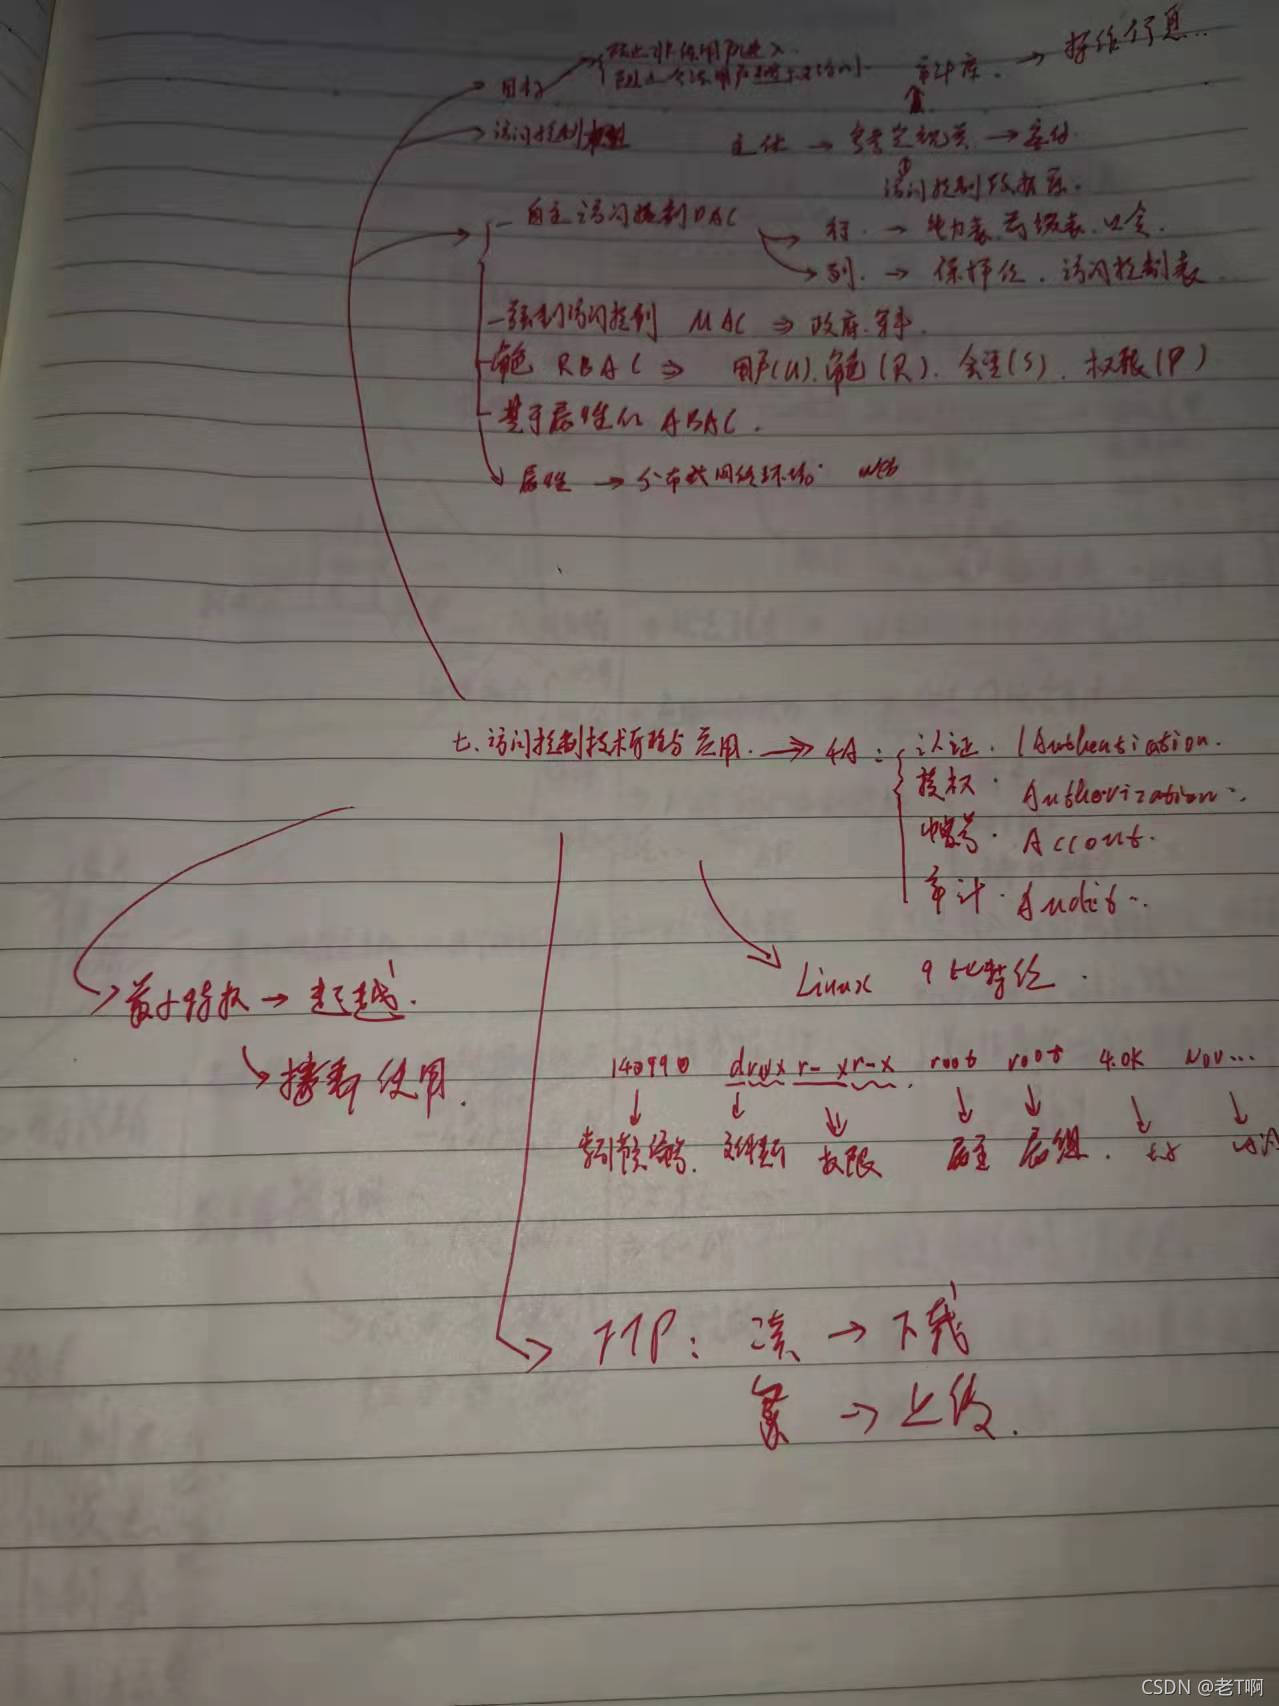 目标 → 阻止非法用户进入
阻止合法用户
审计库 → 操作信息...
访问控制模型
主体 → 参考监视器 → 客体
访问控制数据库
自主访问控制 DAC
行 → 能力表、前缀表、口令
列 → 保护位、访问控制表
强制访问控制 MAC ⇒ 政府、军事
角色 RBAC ⇒ 用户(U)、角色(R)、会话(S)、权限(P)
基于属性的 ABAC
属性 → 分布式网络环境
七、访问控制技术原理与应用 → 4A:
认证. Authentication.
授权. Authorization..
帐号. Accont.
审计. Audit..
Linux 9比特位.
最小特权 → 超越.
→ 接着 使用.
140990 drwx r-xr-x. root root 4.0K Nov...
索引节点编号. 文件类型 权限 属主 属组.
FTP: 读 → 下载
写 → 上传.
CSDN @老T啊